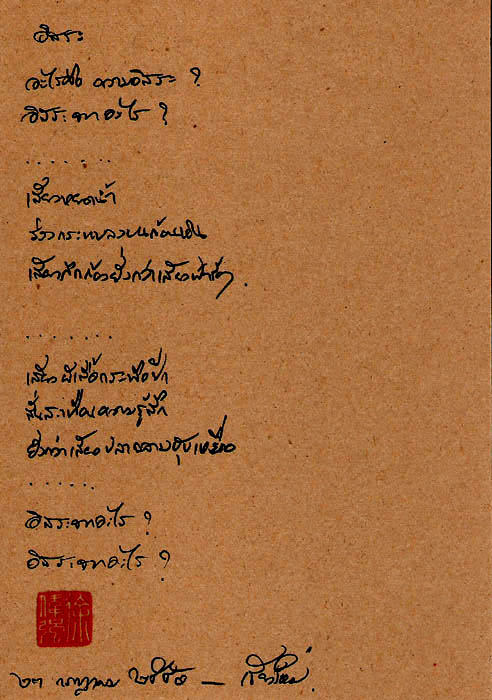 อิสระ
อะไรคือ ความอิสระ ?
อิสระจากอะไร ?
. . . . . . .
เสียงหยดน้ำ
ร่วงกระทบลงบนก้อนหิน
เสียงกึกก้องยิ่งกว่าเสียงฟ้าผ่า
. . . . . . .
เสียงผีเสื้อกระพือปีก
สั่นสะเทือนความรู้สึก
ยิ่งกว่าเสียงปลาฉลามฮุบเหยื่อ
. . . . . .
อิสระจากอะไร ?
อิสระจากอะไร ?
๒๓ กรกฎาคม — เชียงใหม่